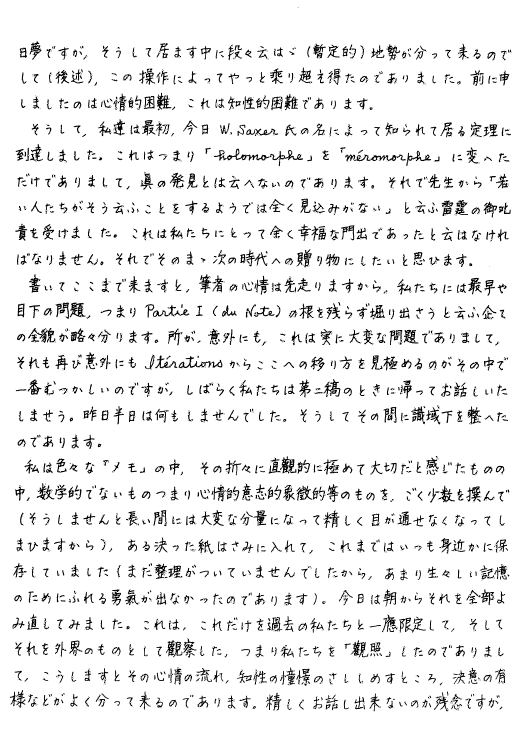 日夢ですが，そうして居ます中に段々云はゞ（暫定的）地勢が分って来るので
して（後述），この操作によってやっと乗り超え得たのでありました。前に申
しましたのは心情的困難，これは知性的困難であります。
そうして，私達は最初，今日 W. Saxer 氏の名によって知られて居る定理に
到達しました。これはつまり「holomorphe」を「méromorphe」に変へた
だけでありまして，眞の発見とは云へないのであります。それで先生から「若
い人たちがそう云ふことをするようでは全く見込みがない」と云ふ雷霆の御叱
責を受けました。これは私たちにとって全く幸福な門出であったと云はなけれ
ばなりません。それでそのまゝ次の時代への贈り物にしたいと思ひます。
書いてここまで来ますと，筆者の心情は先走りますから，私たちには最早や
目下の問題，つまり Partie I (du Note) の根を残らず堀り出さうと云ふ企て
の全貌が略々分ります。所が，意外にも，これは実に大変な問題でありまして，
それも再び意外にも Itérations からここへの移り方を見極めるのがその中で
一番むつかしいのですが，しばらく私たちは第二稿のときに帰ってお話しいた
しませう。昨日半日は何もしませんでした。そうしてその間に識域下を整へた
のであります。
私は色々な「メモ」の中，その折々に直觀的に極めて大切だと感じたものの
中，数学的でないものつまり心情的意志的象徴的等のものを，ごく少数を撰んで
（そうしませんと長い間には大変な分量になって精しく目が通せなくなってし
まひますから），ある決った紙はさみに入れて，これまではいつも身近かに保
存していました（まだ整理がついていませんでしたから，あまり生々しい記憶
のためにふれる勇氣が出なかったのであります）。今日は朝からそれを全部よ
み直してみました。これは，これだけを過去の私たちと一應限定して，そして
それを外界のものとして觀察した，つまり私たちを「觀照」したのでありまし
て，こうしますとその心情の流れ，知性の憧憬のさししめすところ，決意の有
様などがよく分って来るのであります。精しくお話し出来ないのが残念ですが，